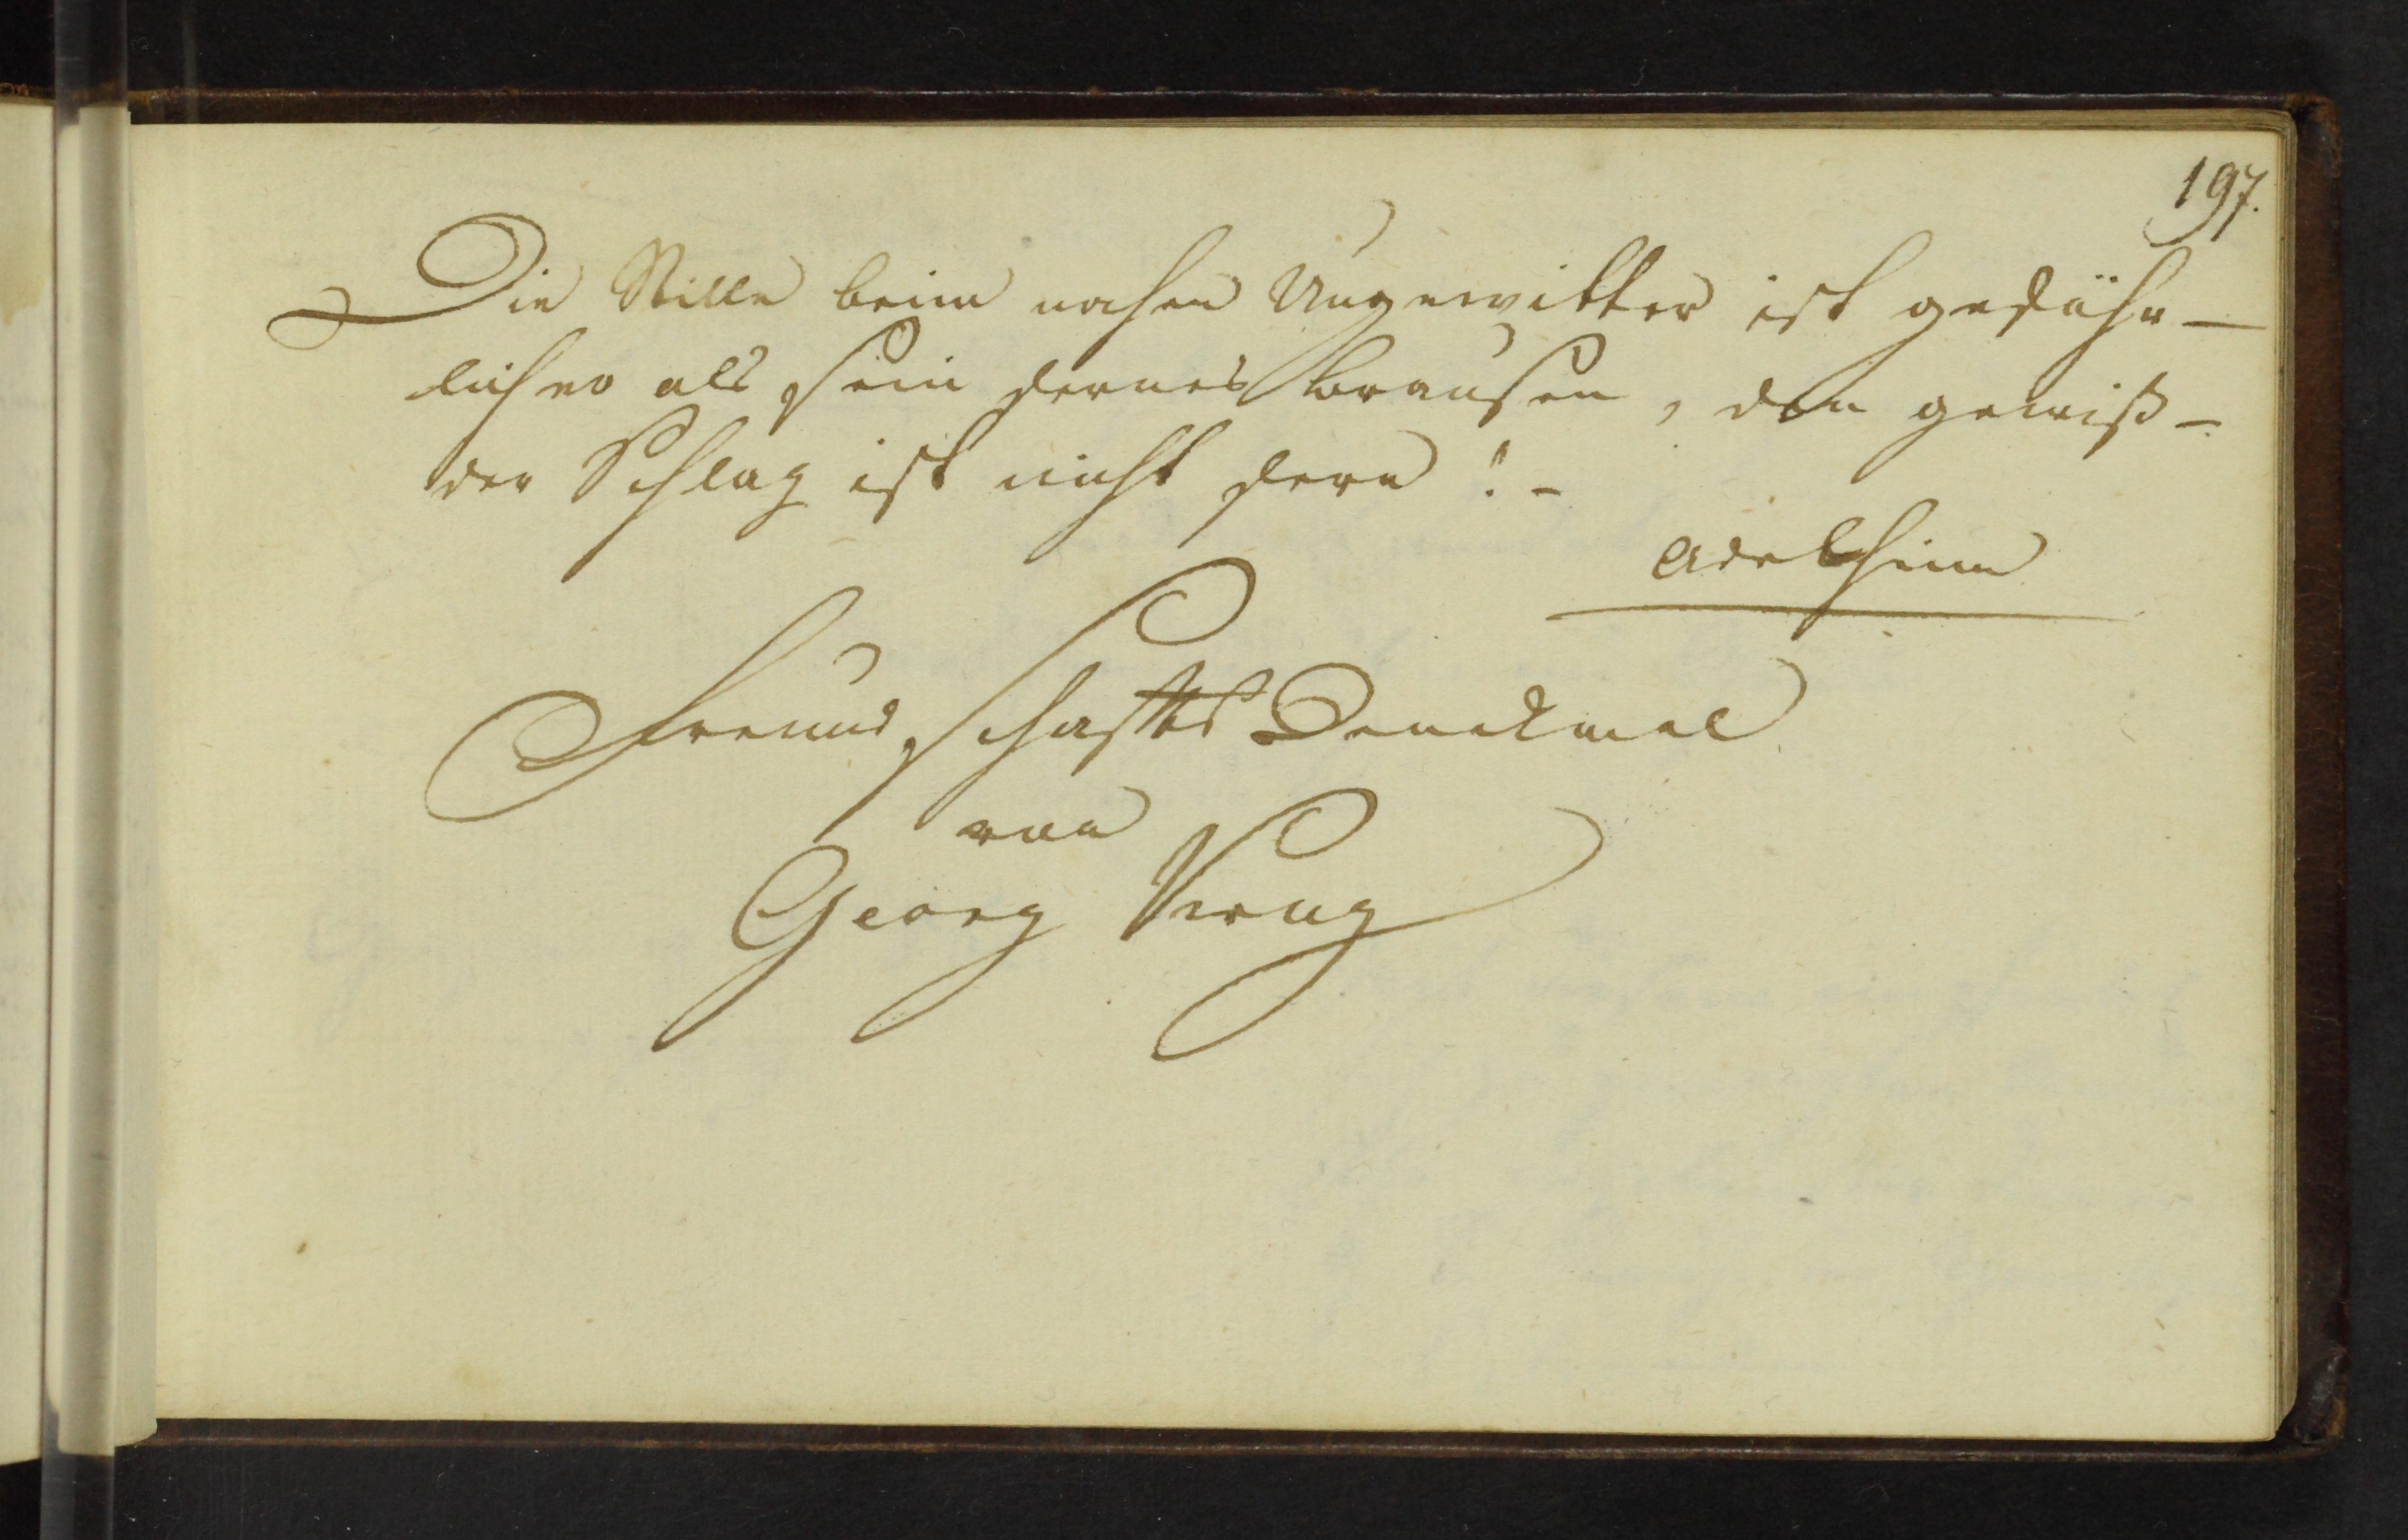 197.
Die Stille beim nahen Ungewitter ist gefähr-
licher als sein fernes brausen, den gewiß-
der Schlag ist nicht fern! -
Adelheim
Freundschafts Denckmal
von
Georg